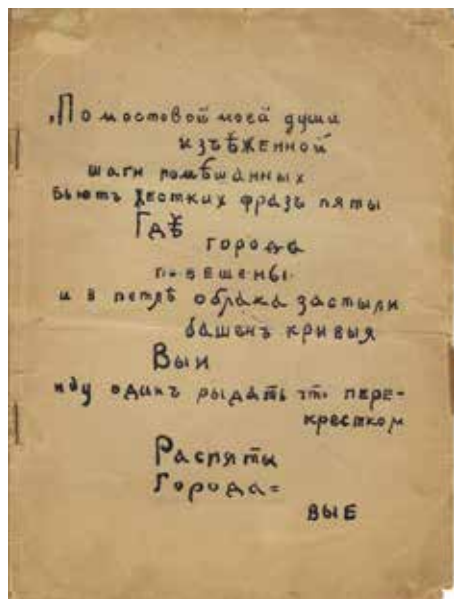 „По мостовой моей души
изѣѣженной
шаги помѣшанных
бьютъ жестких фразъ пяты
Гдѣ
города
повѣшены
и в петлѣ облака застыли
башенъ кривыя
Выи
иду одинъ рыдать что пере-
крестком
Распяты
Города=
вые